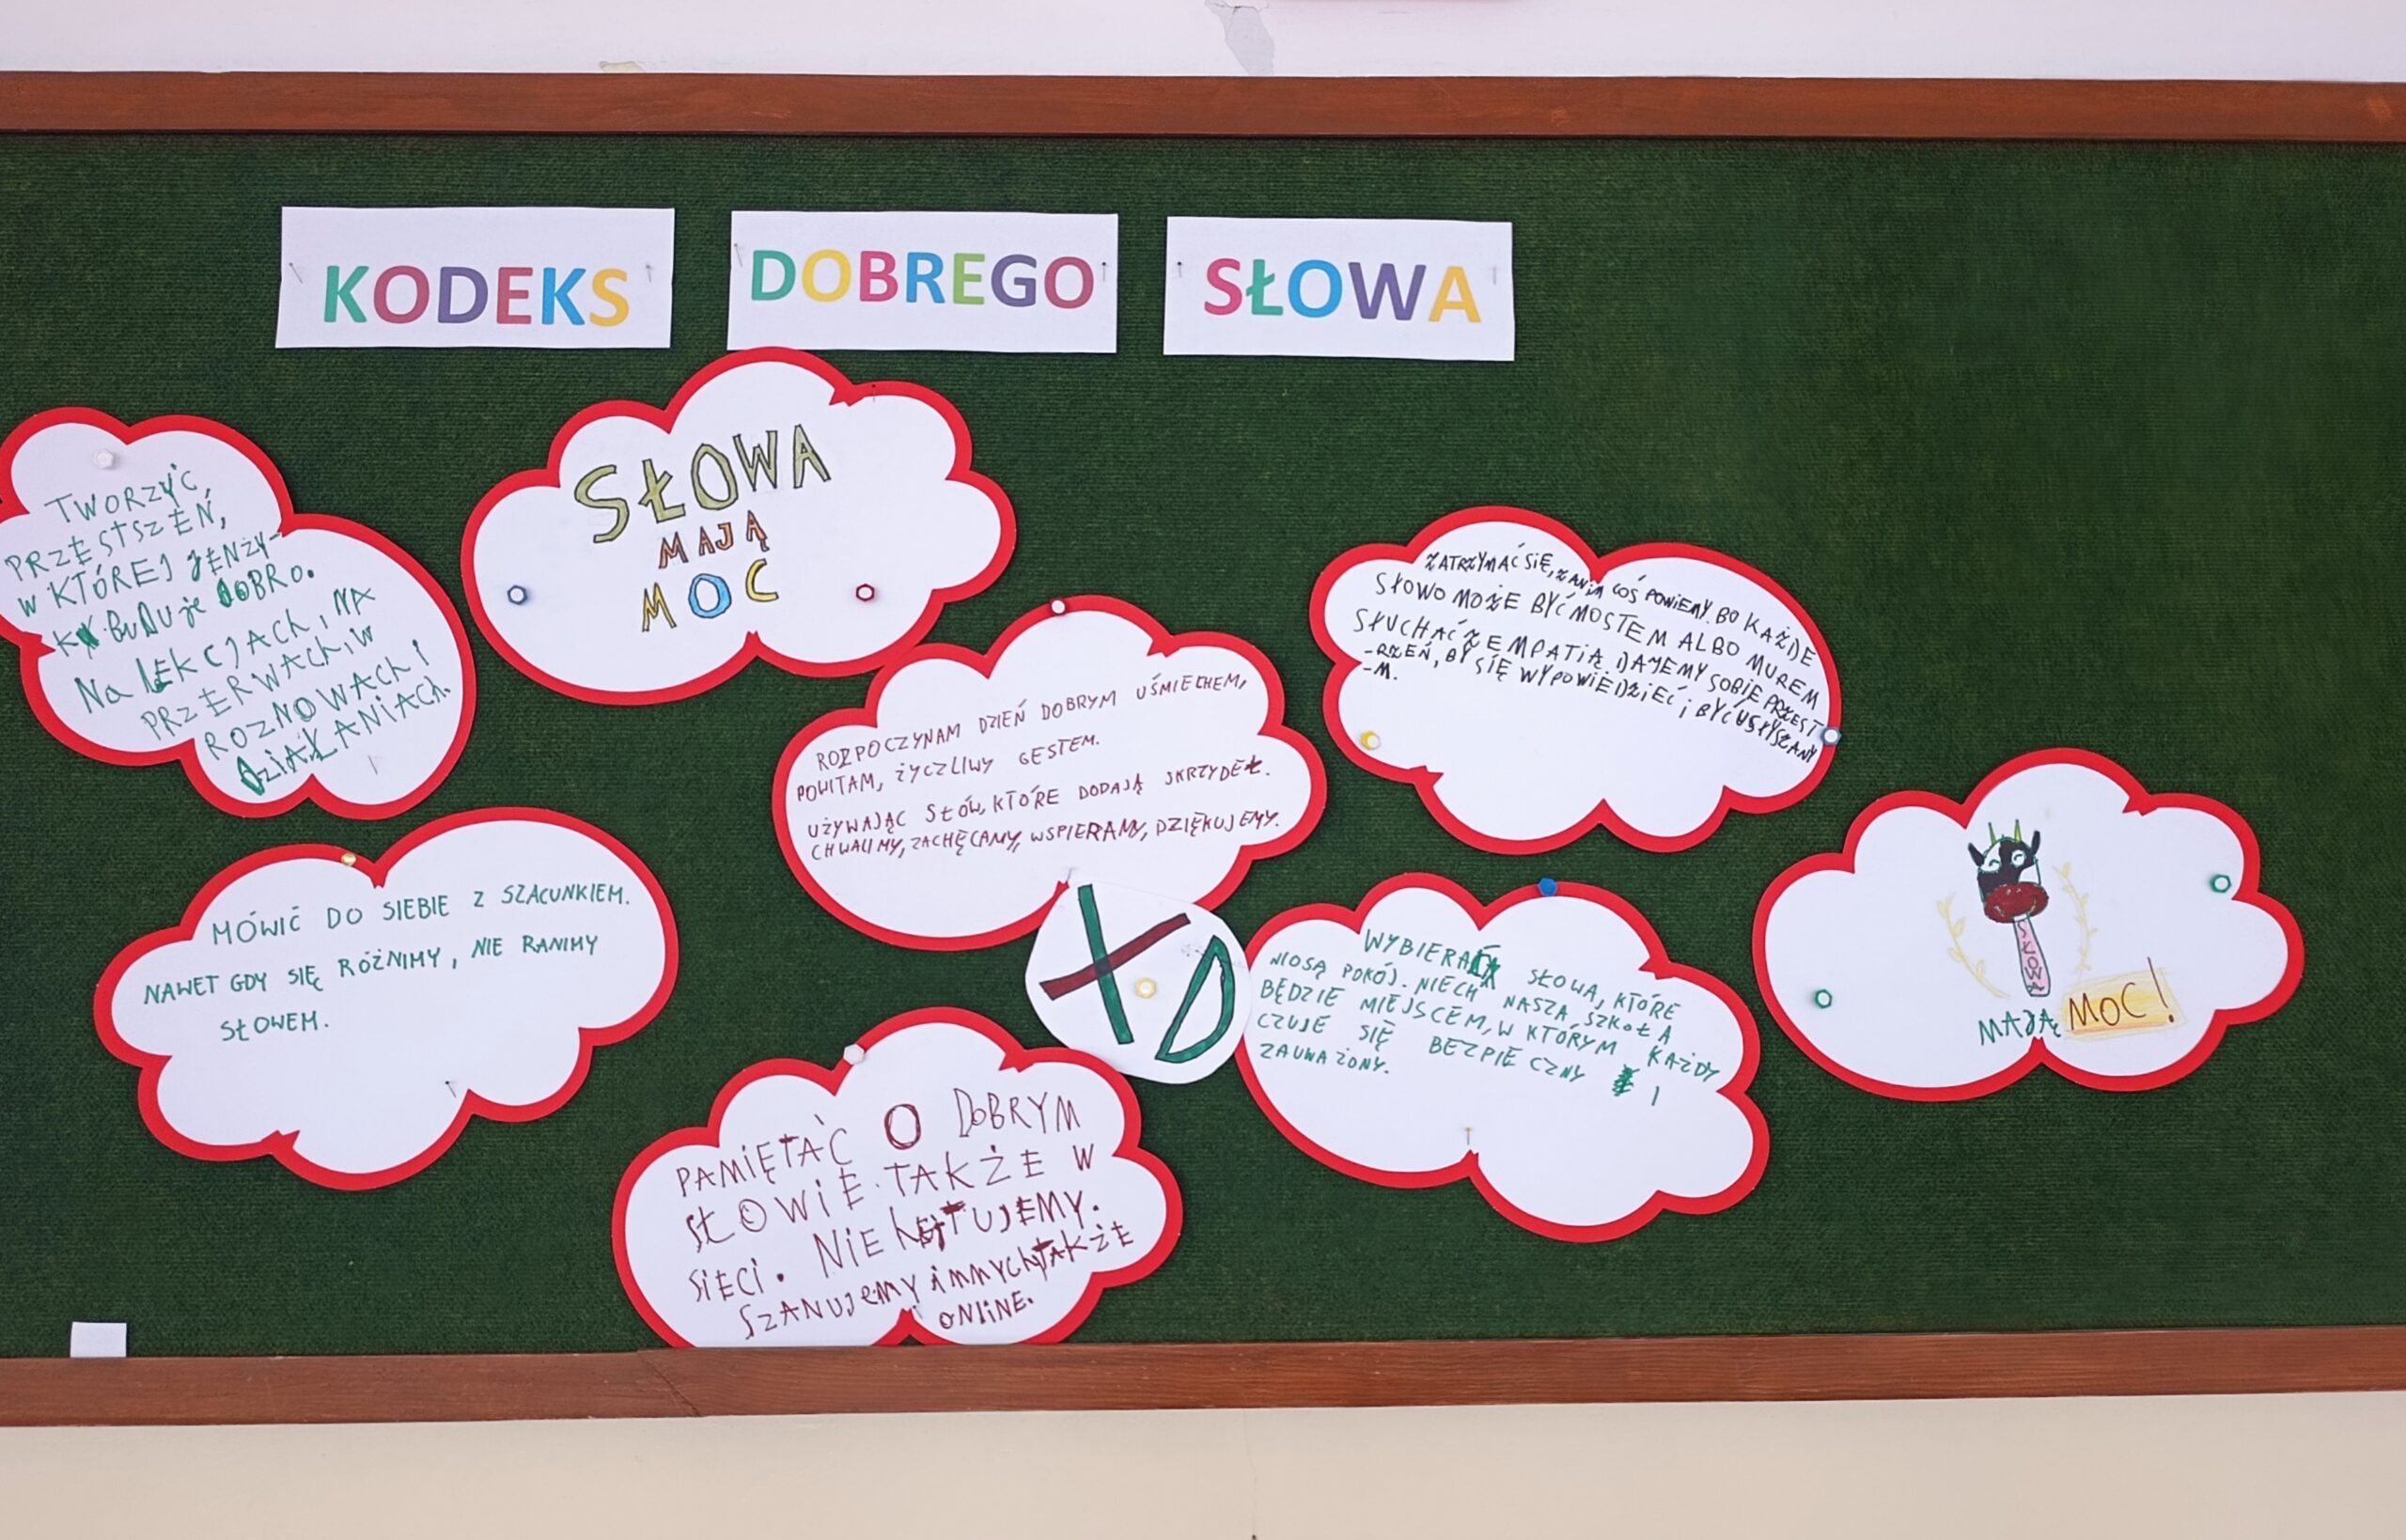 KODEKS DOBREGO SŁOWA
SŁOWA
MAJĄ
MOC
TWORZYĆ
PRZESTSZEŃ,
W KTÓREJ JĘNZY-
K BUDUje DOBRO.
Na LEKCJACH, NA
PRZERWACH, W
ROZMOWACH I
DZIAŁANIACH.
ZATRZYMAĆ SIĘ, ZANIM COŚ POWIEMY. BO KAŻDE
SŁOWO MOŻE BYĆ MOSTEM ALBO MUREM
SŁUCHAĆ Z EMPATIĄ. DAJEMY SOBIE PRZEST
-RZEŃ, BY SIĘ WYPOWIEDZIEĆ i BYĆ USŁYSZANY
-M.
ROZPOCZYNAM DZIEŃ DOBRYM UŚMIECHEM,
POWITAM, ŻYCZLIWY GESTEM.
UŻYWAJĄC SŁÓW, KTÓRE DODAJĄ SKRZYDEŁ.
CHWALIMY, ZACHĘCAMY, WSPIERAMY, DZIĘKUJEMY.
MÓWIĆ DO SIEBIE Z SZACUNKIEM.
NAWET GDY SIĘ RÓŻNIMY, NIE RANIMY
SŁOWEM.
XD
WYBIERAĆ SŁOWA, KTÓRE
NIOSĄ POKÓJ. NIECH NASZA SZKOŁA
BĘDZIE MIEJSCEM, W KTÓRYM KAŻDY
CZUJE SIĘ BEZPIECZNY I
ZAUWAŻONY.
SŁOWA
MAJĄ MOC!
PAMIĘTAĆ O DOBRYM
SŁOWIE TAKŻE W
SIECI. NIE HEJTUJEMY.
SZANUJEMY INNYCH TAKŻE
ONLINE.